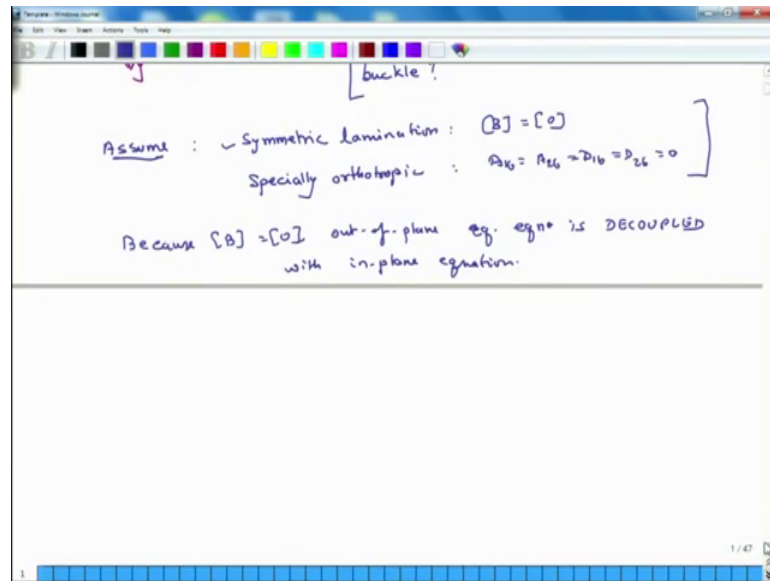 Template - Windows Journal
File Edit View Insert Actions Tools Help
B I
buckle?
Assume : Symmetric lamination : [B] = [0]
Specially orthotropic : A16 = A26 = D16 = D26 = 0
Because [B] = [0] out-of-plane eq. eqn. is DECOUPLED
with in-plane equation.
1 / 47
1